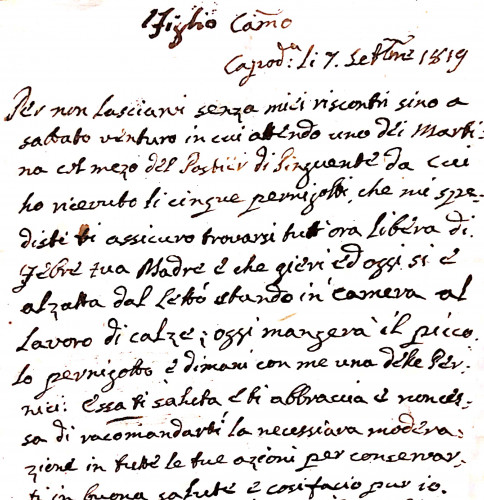 Figlio Carmo
Capod:a li 7. Settbre 1819
Per non lasciarvi senza miei riscontri sino a
sabbato venturo in cui attendo uno dei Marti-
na col mezo del Postier di Pinguente da cui
ho ricevuto li cinque pernigotti, che mi spe-
disti ti assicuro trovarsi tutt'ora libera di
febre tua Madre e che gieri ed oggi si è
alzatta dal letto stando in camera al
lavoro di calze; oggi mangerà il picco-
lo pernigotto e dimani con me una delle Per-
nici: Essa ti saluta e ti abbraccia e non ces-
sa di racomandarti la necessaria modera-
zione in tutte le tue azioni per conservar-
ti in buona salute e così facio pur io.